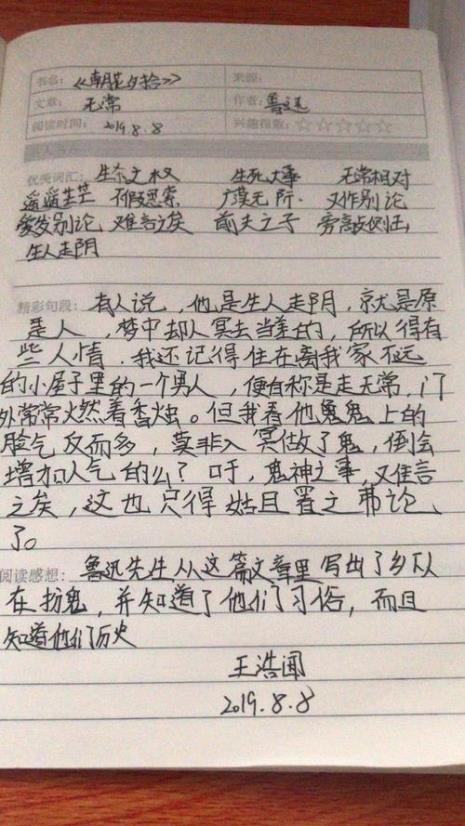 书名：《朝花夕拾》 来源：
文章：无常 作者：鲁迅
阅读时间：2019.8.8 兴趣指数：☆☆☆☆☆
优美词汇：生杀之权 生死大事 无常相对
遥遥茫茫 不假思索 广漠无际 又作别论
爱发别论 难言之矣 前夫之子 旁敲侧击
生人走阴
精彩句段：有人说，他是生人走阴，就是原
是人，梦中却入冥去当差的，所以得有
些人情．我还记得住在离我家不远
的小屋子里的一个男人，便自称是走无常，门
外常常火燃着香烛。但我看他鬼鬼上的
脸气反而多，莫非入冥做了鬼，倒会
增加人气的么？吁，鬼神之事，又难言
之矣，这也只得姑且置之弗论
了。
阅读感想：鲁迅先生从这篇文章里写出了乡下人
在扮鬼，并知道了他们习俗，而且
知道他们历史
王浩闻
2019.8.8